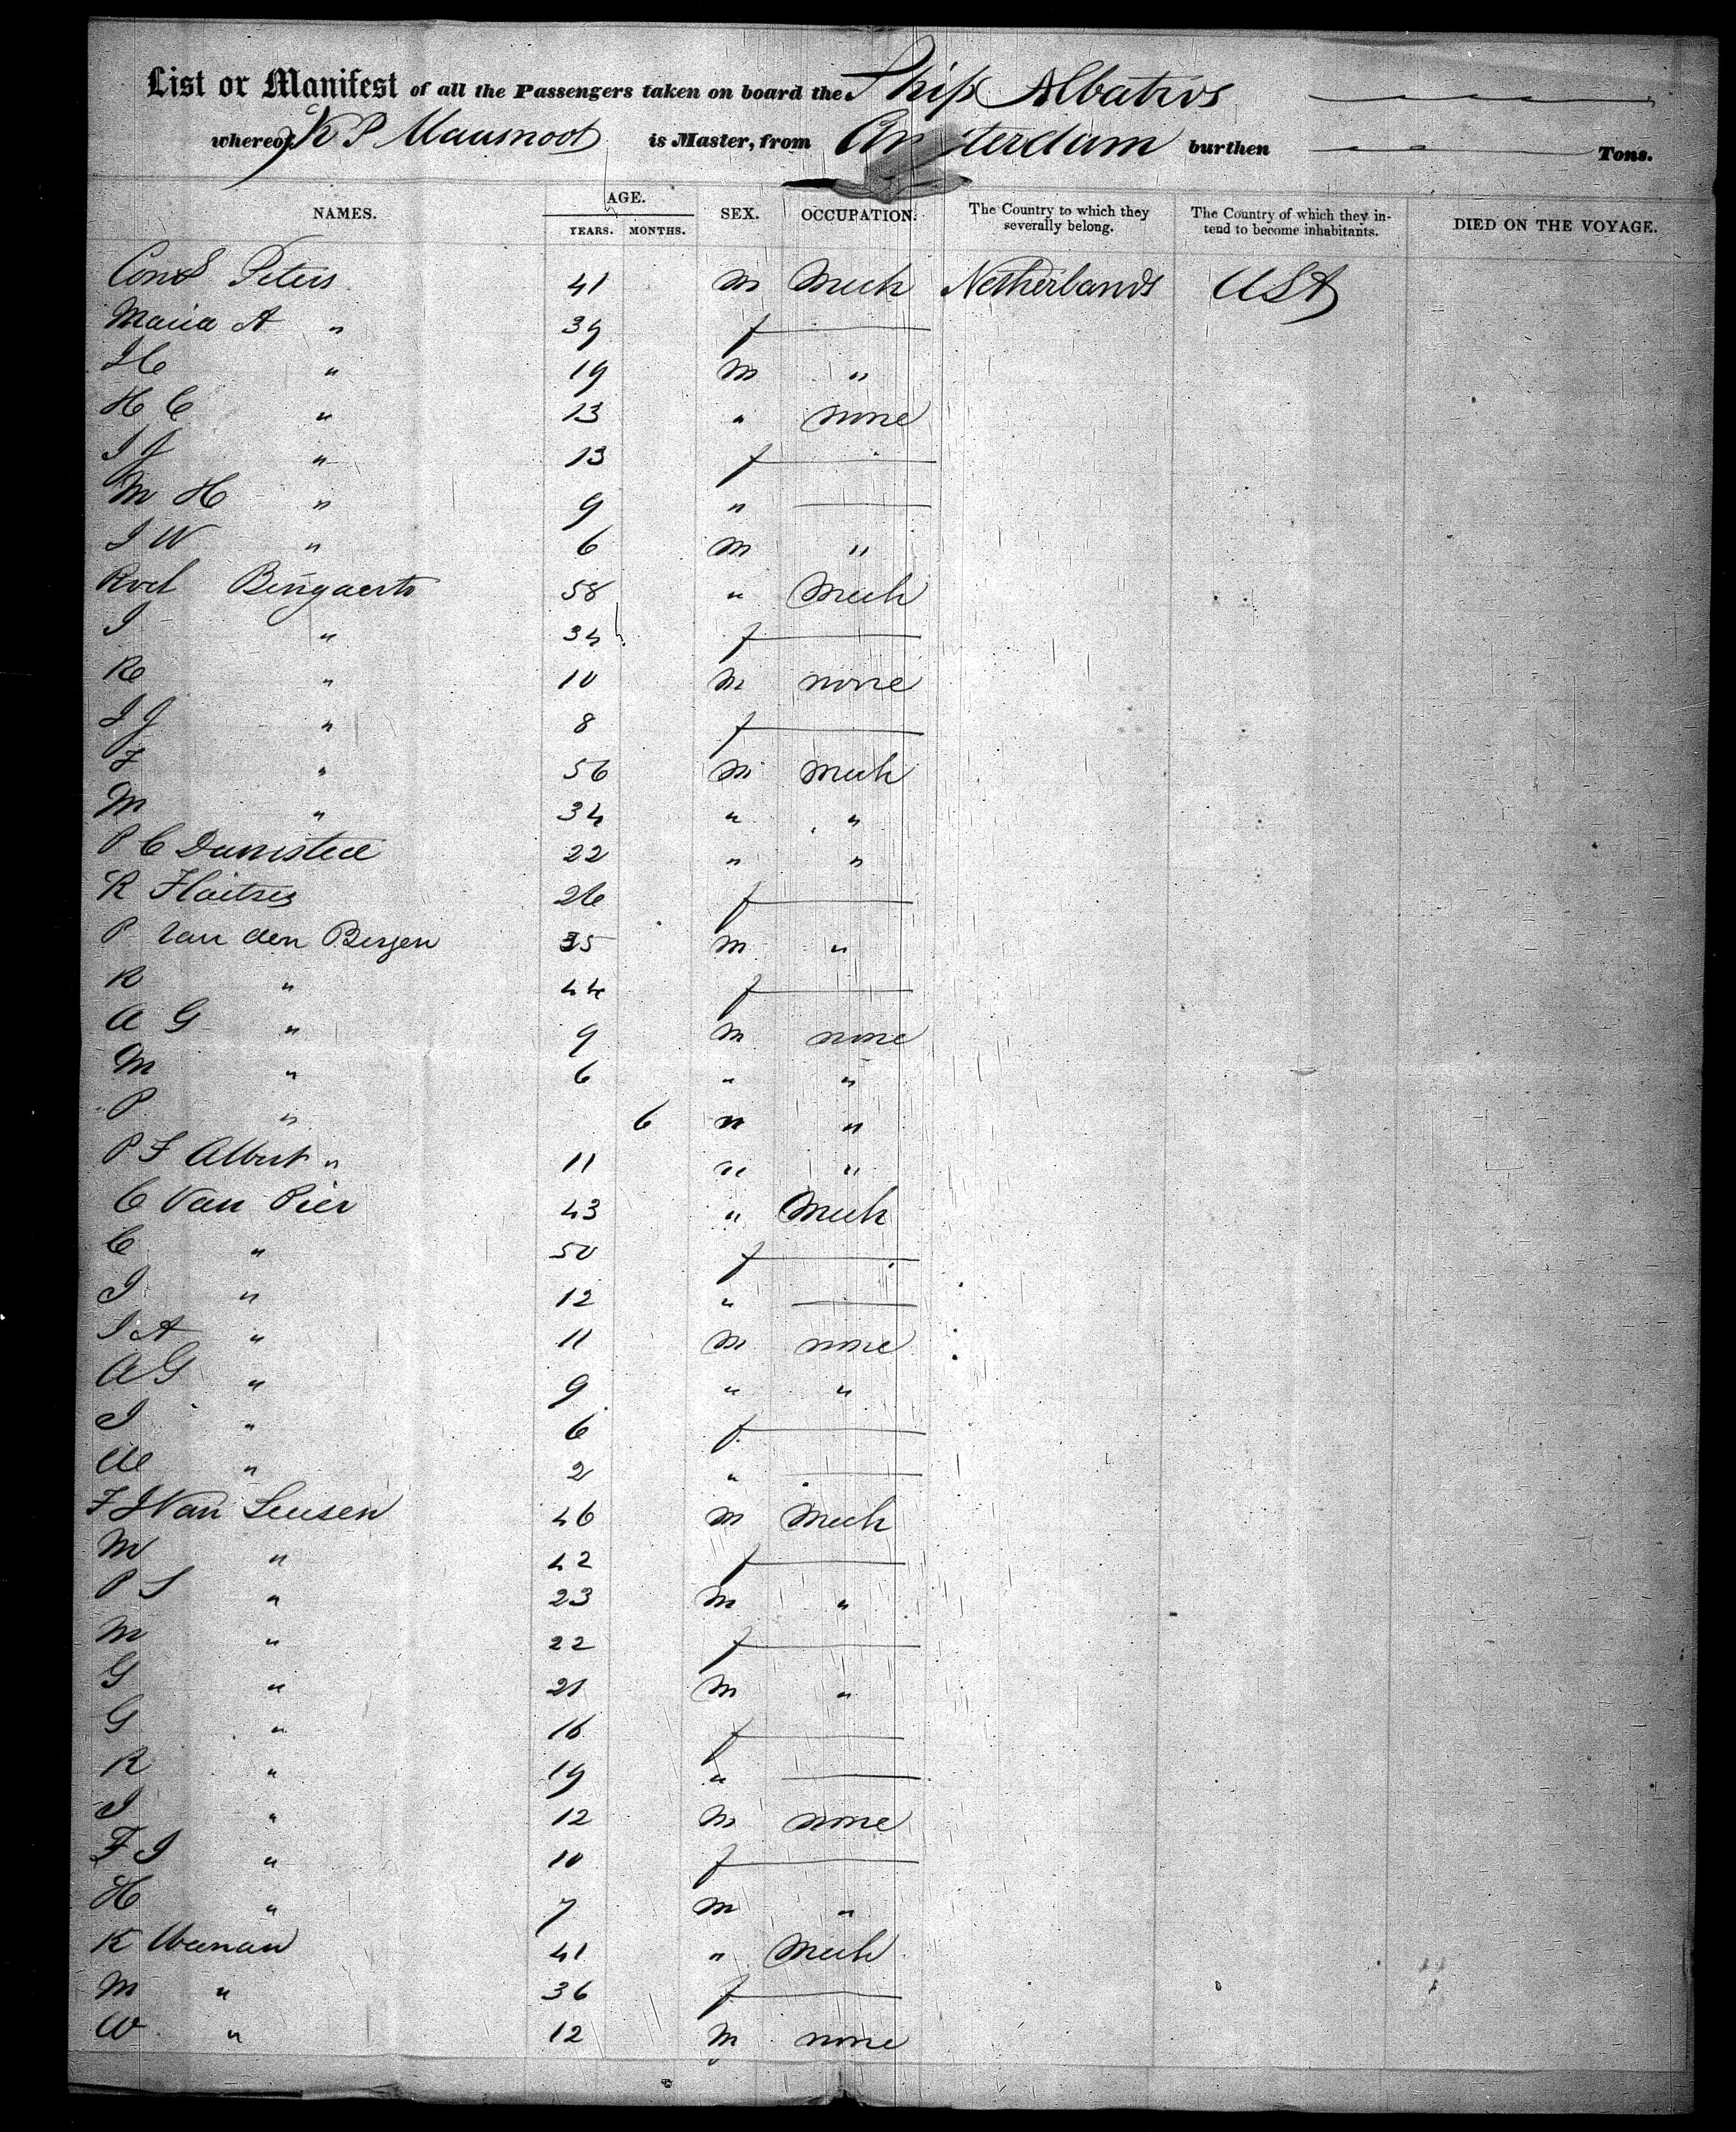 List or Manifest of all the Passengers taken on board the Ship Albatros
whereof K P Mausnoot is Master, from Amsterdam burthen Tons.
NAMES. AGE. YEARS. MONTHS. SEX. OCCUPATION. The Country to which they severally belong. The Country of which they intend to become inhabitants. DIED ON THE VOYAGE.
Peters 41 m Mech Netherlands USA
Maria A " 39 f
" 19 m "
H C " 13 " none
I J " 13 f
M H " 9 "
I W " 6 m "
Roel Bingaerts 58 " Mech
I " 34 f
" 10 m none
I J " 8 f
F " 56 m Mech
M " 34 " "
P C 22 " "
R 26 f
P Van den Bergen 35 m "
R " 44 f
A G " 9 m none
M " 6 " "
P " 6 " "
P F Albert " 11 " "
C Van Pier 43 " Mech
C " 50 f
I " 12 "
I A " 11 m none
A G " 9 " "
I " 6 f
" 2 "
F J Van Leusen 46 m Mech
M " 42 f
P S " 23 m "
M " 22 f
G " 21 m "
G " 16 f
R " 19 "
I " 12 m none
F I " 10 f
H " 7 m "
K 41 " Mech
M " 36 f
W " 12 m none